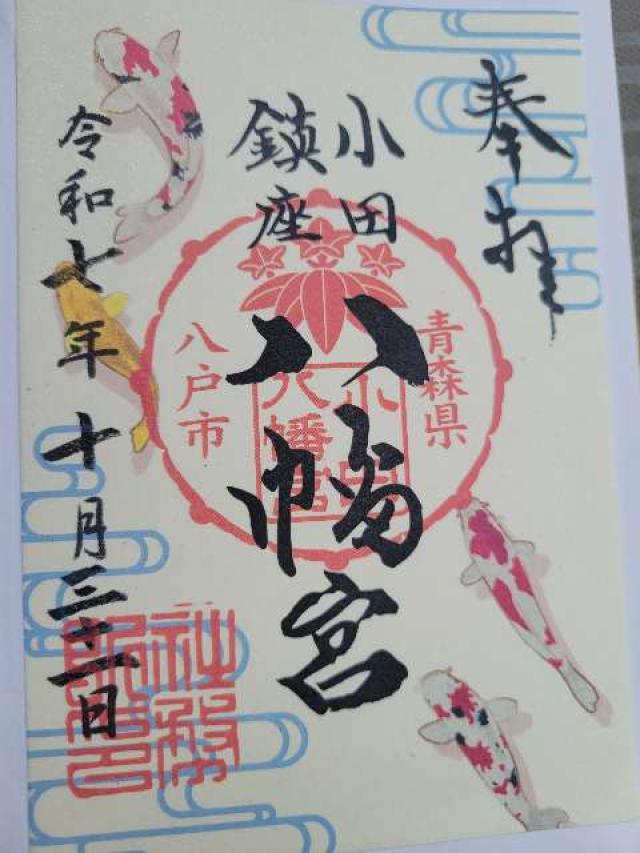 奉拝
小田
鎮座
八幡宮
青森県
小田
八幡宮
八戸市
令和七年十月三十一日
社務
所印